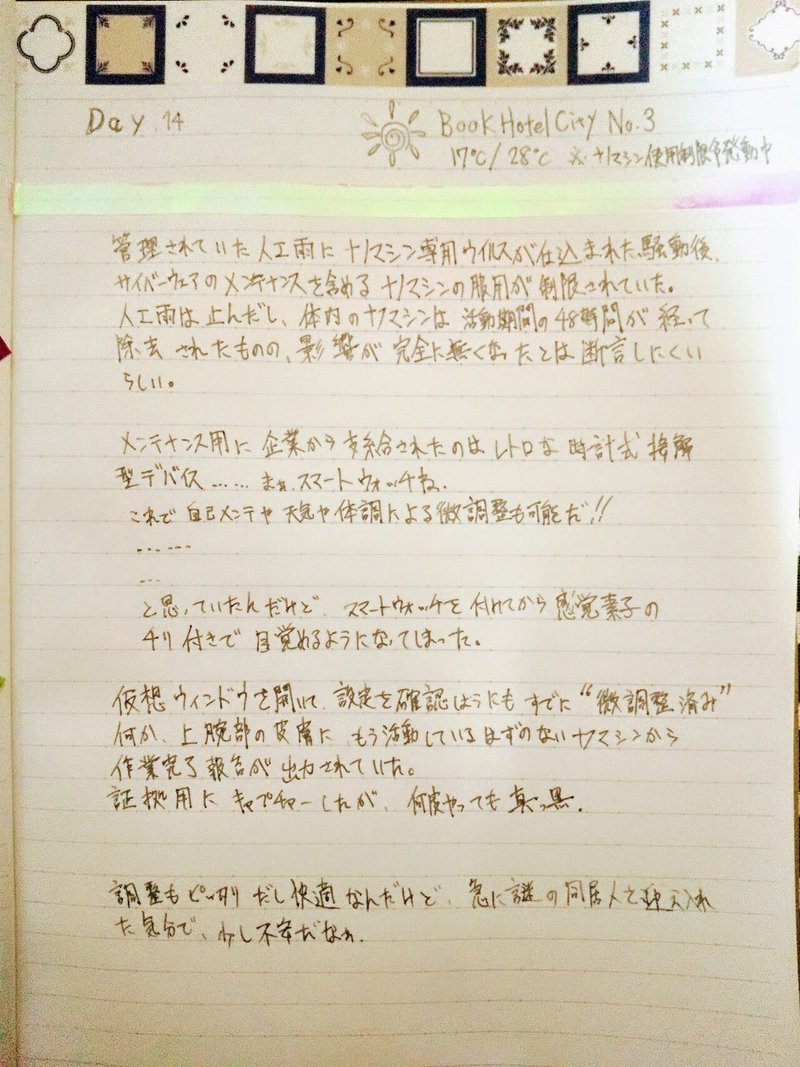 Day 14
Book Hotel City No.3
17℃/28℃ ※ナノマシン使用制限令発動中
管理されていた人工雨にナノマシン専用ウイルスが仕込まれた騒動後、
サイバーウェアのメンテナンスを含めるナノマシンの服用が制限されていた。
人工雨は止んだし、体内のナノマシンは活動期間の48時間が経って
除去されたものの、影響が完全に無くなったとは断言しにくい
らしい。
メンテナンス用に企業から支給されたのはレトロな時計式接触
型デバイス……まぁ、スマートウォッチね。
これで自己メンテや天気や体調による微調整も可能だ!!
……
…
と思っていたんだけど、スマートウォッチを付けてから感覚素子の
チリ付きで目覚めるようになってしまった。
仮想ウィンドウを開いて、設定を確認しようにもすでに“微調整済み”
何か、上腕部の皮膚に、もう活動しているはずのないナノマシンから
作業完了報告が出力されていた。
証拠用にキャプチャーしたが、何度やっても真っ黒.
調整もピッタリだし快適なんだけど、急に謎の同居人を迎え入れ
た気分で、少し不安だなぁ.